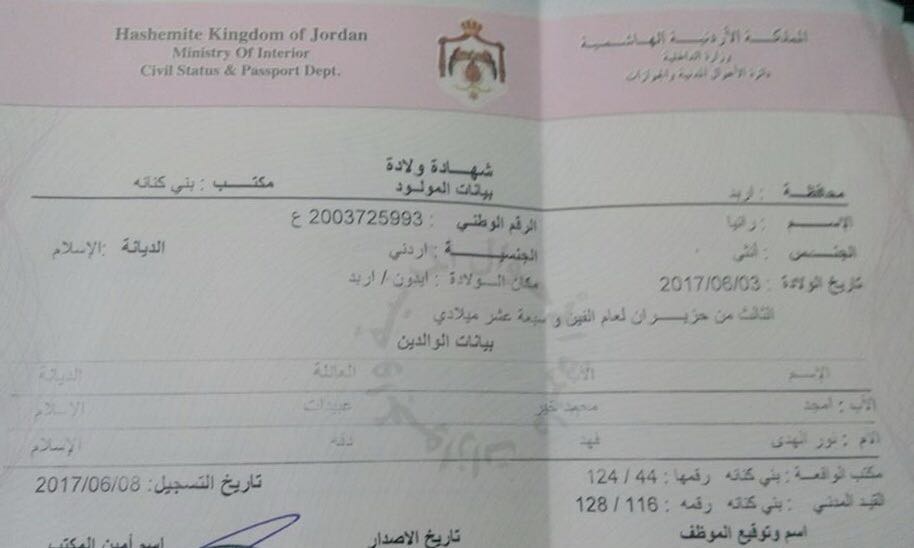 Hashemite Kingdom of Jordan
Ministry Of Interior
Civil Status & Passport Dept.
المملكة الأردنية الهاشمية
وزارة الداخلية
دائرة الأحوال المدنية والجوازات
شهادة ولادة
بيانات المولود
محافظة : اربد مكتب : بني كنانه
الإسم : رانيا الرقم الوطني : 2003725993 ع
الجنس : أنثى الجنسية : اردني الديانة : الإسلام
تاريخ الولادة : 2017/06/03 مكان الولادة : ايدون / اربد
الثالث من حزيران لعام الفين و سبعة عشر ميلادي
بيانات الوالدين
الإسم الأب العائلة الديانة
الأب : امجد محمد خير عبيدات الإسلام
الام : نور الهدى فهد الإسلام
مكتب الواقعة : بني كنانه رقمها : 44 / 124 تاريخ التسجيل : 2017/06/08
القيد المدني : بني كنانه رقمه : 116 / 128
اسم وتوقيع الموظف تاريخ الاصدار اسم أمين المكتب